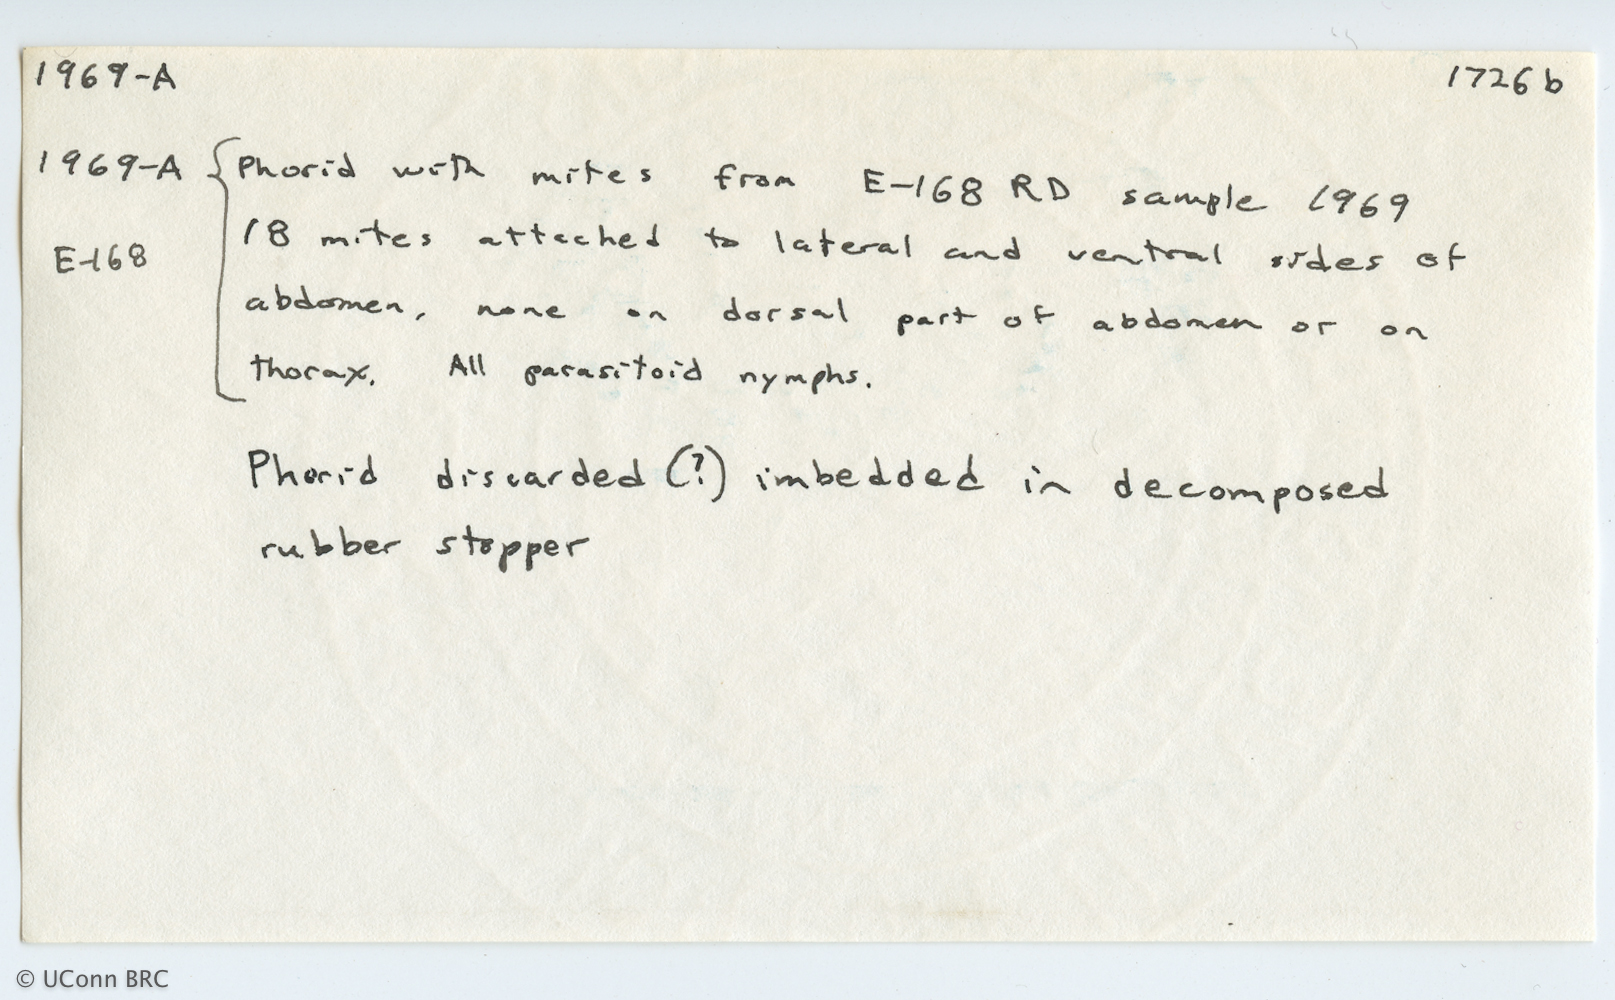 1969-A 1726b
1969-A { Phorid with mites from E-168 RD sample 1969
E-168 18 mites attached to lateral and ventral sides of
abdomen, none on dorsal part of abdomen or on
thorax. All parasitoid nymphs.
Phorid discarded (?) imbedded in decomposed
rubber stopper
© UConn BRC